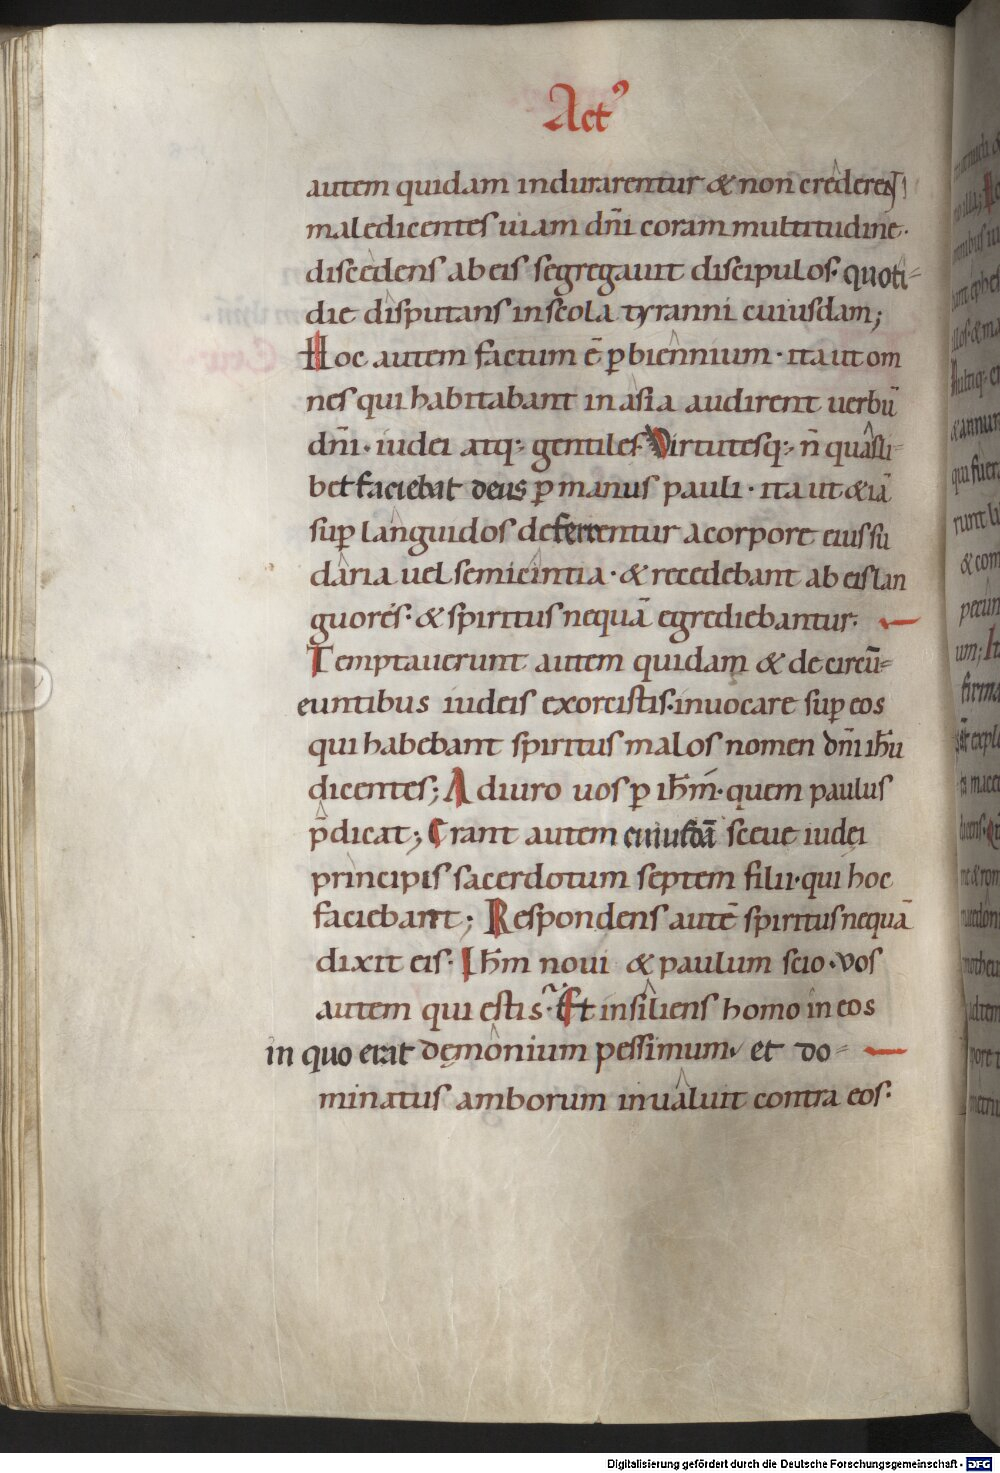 Act⁹
autem quidam indurarentur & non crederent
maledicentes uiam dn̄i coram multitudine.
discedens ab eis segregauit discipulos. quoti-
die disputans inscola tyranni cuiusdam;
Hoc autem factum ē p̱ biennium. ita ut om
nes qui habitabant in asia audirent uerbū
dn̄i. iudei atq; gentiles. Virtutesq; n̄ quasli-
bet faciebat deus p̱ manus pauli. ita ut &iā
sup̱ languidos deferrentur acorpore eius su
daria uel semicintia. & recedebant ab eis lan
guores. & spiritus nequā egrediebantur.
Temptauerunt autem quidam & de circū-
euntibus iudeis exorcistis. inuocare sup̱ eos
qui habebant spiritus malos nomen dn̄i ih̄u
dicentes; Adiuro uos p̱ ih̄m. quem paulus
p̄dicat; Erant autem cuiusdā sceue iudei
principis sacerdotum septem filii. qui hoc
faciebant; Respondens autē spiritus nequā
dixit eis. Ih̄m noui & paulum scio. vos
autem qui estis. Et insiliens homo in eos
in quo erat dęmonium pessimum. et do-
minatus amborum inualuit contra eos.
Digitalisierung gefördert durch die Deutsche Forschungsgemeinschaft - DFG